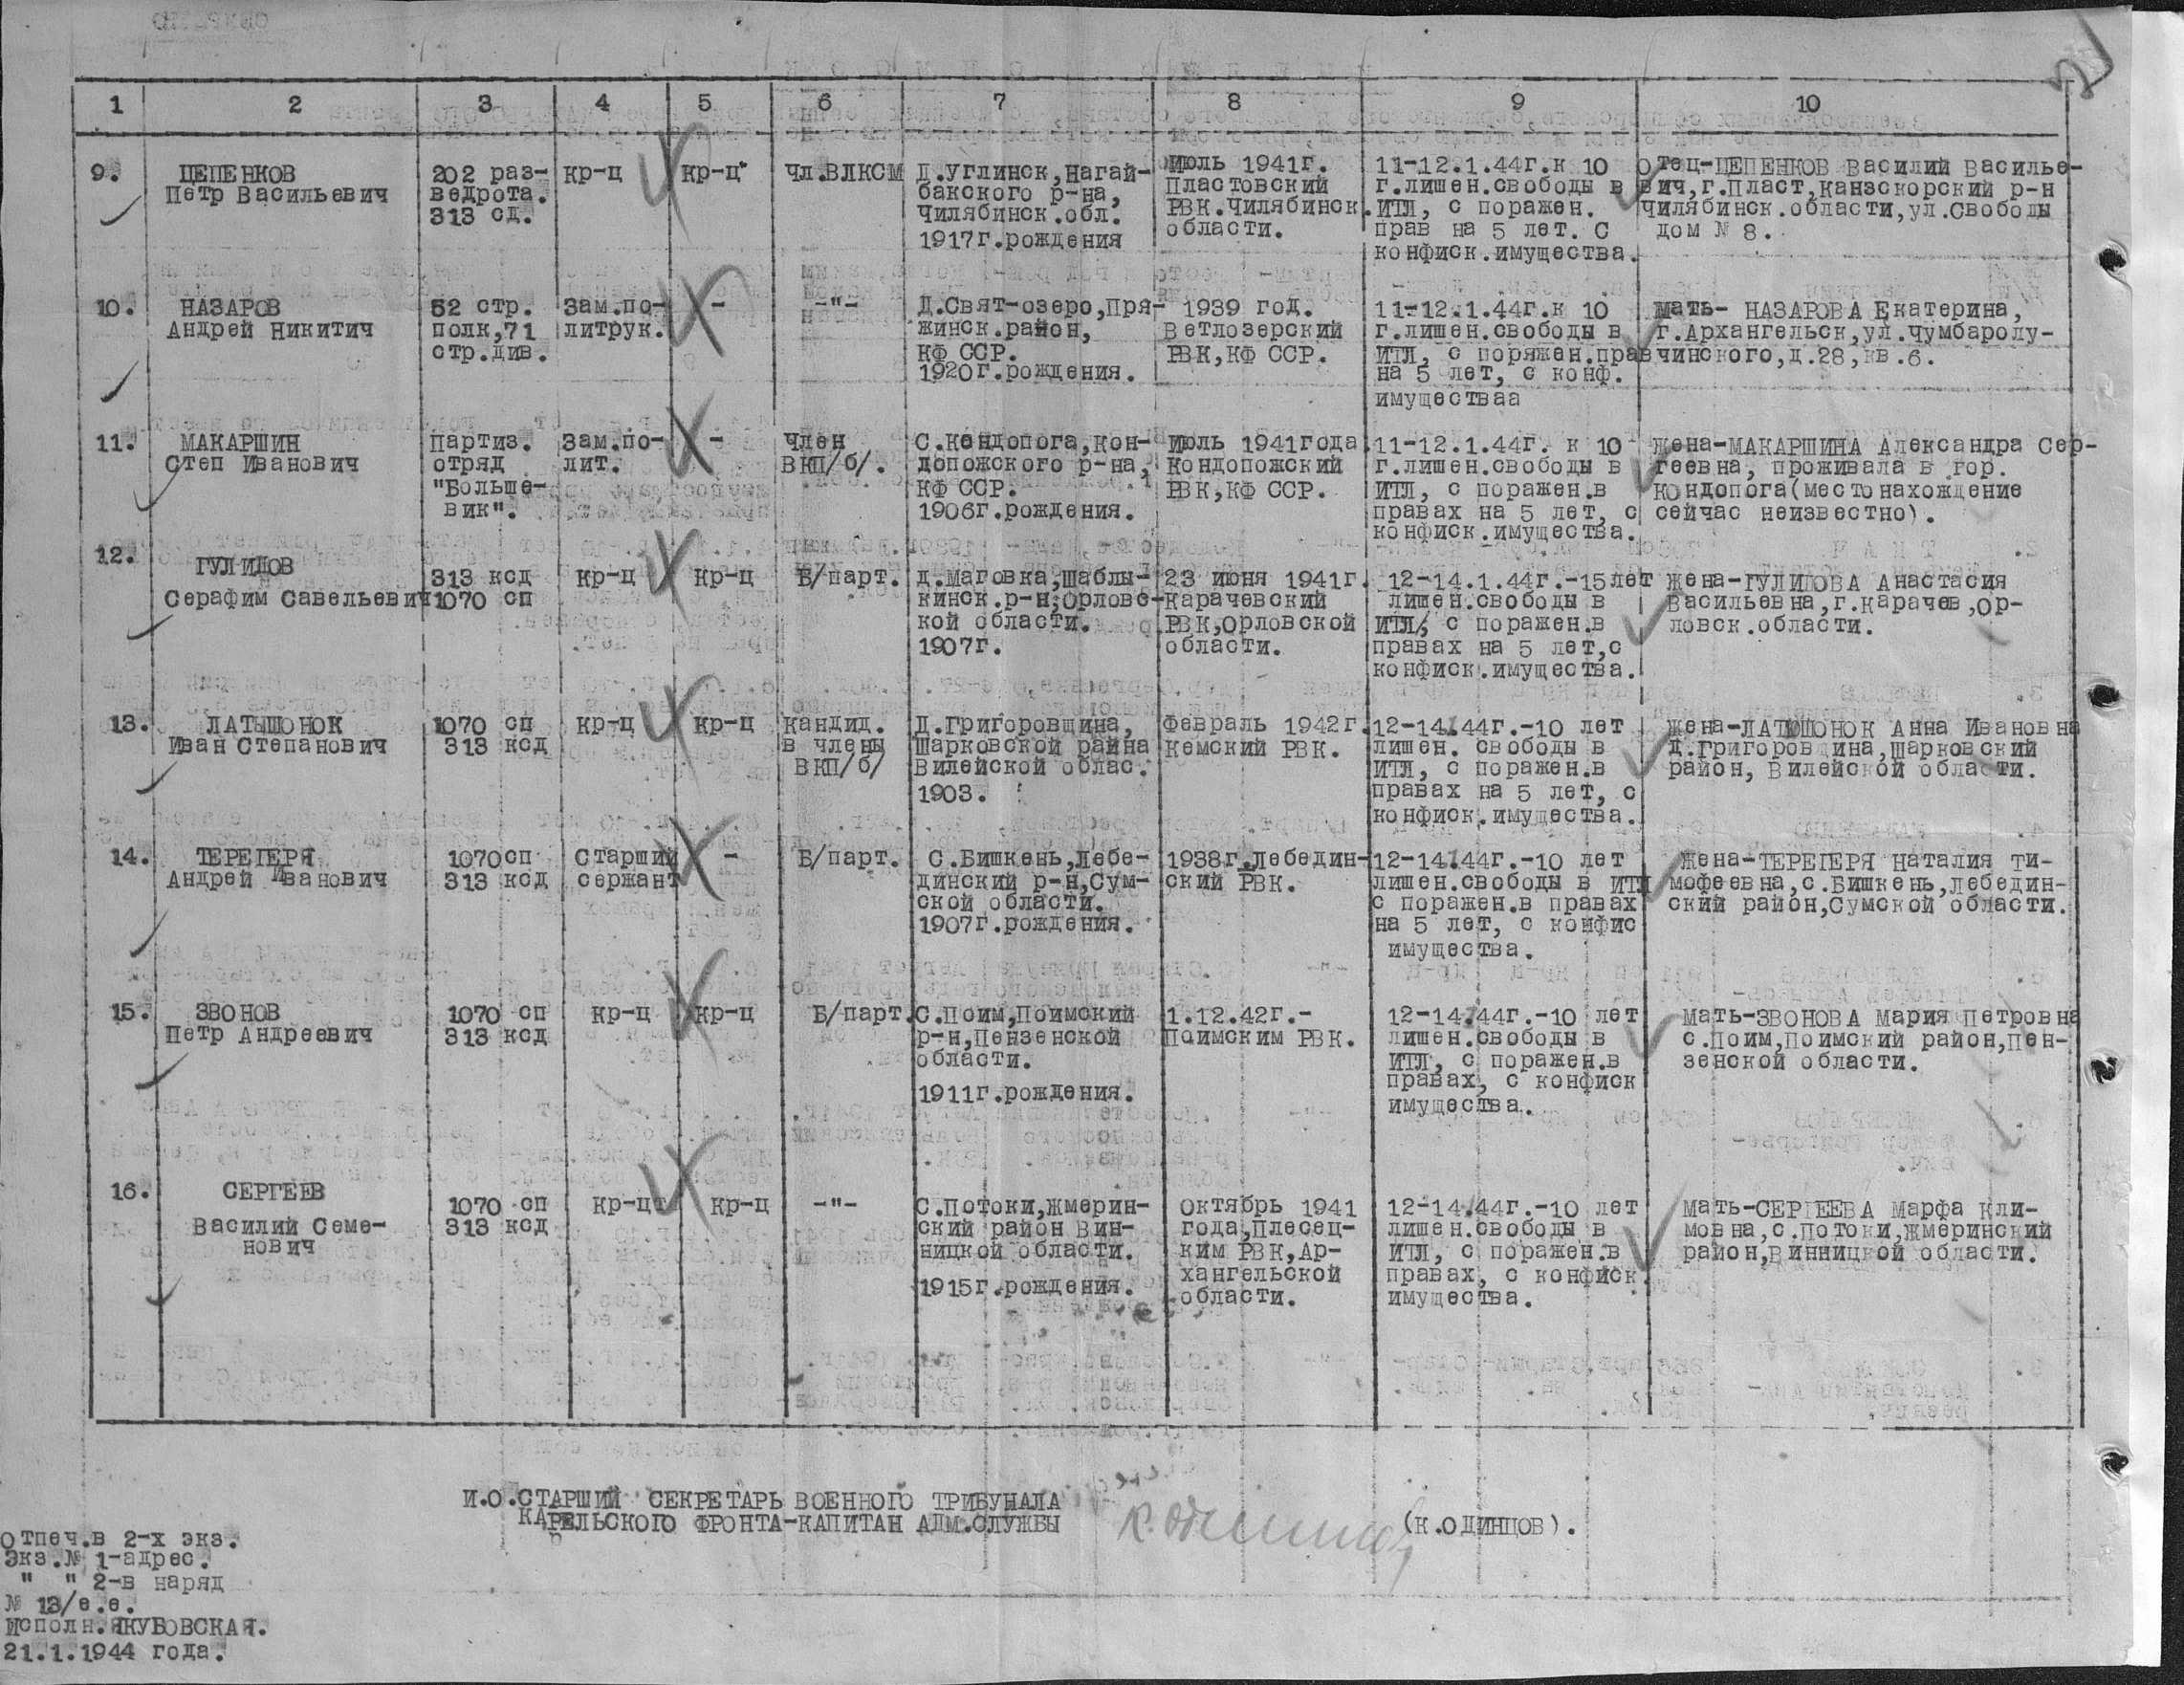 1 2 3 4 5 6 7 8 9 10
9.
ЦЕПЕНКОВ
Петр Васильевич
202 раз-
ведрота.
313 сд.
кр-ц
кр-ц
Чл.ВЛКСМ
Д.Углинск,Нагай-
бакского р-на,
Чилябинск.обл.
1917г.рождения
Июль 1941г.
Пластовский
РВК.Чилябинск.
области.
11-12.1.44г.к 10
г.лишен.свободы в
ИТЛ, с поражен.
прав на 5 лет. С
конфиск.имущества.
Отец-ЦЕПЕНКОВ Василий Василье-
вич,г.Пласт,Канзскорский р-н
Чилябинск.области,ул.Свободы
дом № 8.
10.
НАЗАРОВ
Андрей Никитич
52 стр.
полк,71
стр.див.
Зам.по-
литрук.
-
-"-
Д.Свят-озеро,Пря-
жинск.район,
КФ ССР.
1920г.рождения.
1939 год.
Ветлозерский
РВК,КФ ССР.
11-12.1.44г.к 10
г.лишен.свободы в
ИТЛ, с поряжен.прав
на 5 лет, с конф.
имуществаа
Мать- НАЗАРОВА Екатерина,
г.Архангельск,ул.Чумбаролу-
чинского,д.28,кв.6.
11.
МАКАРШИН
Степ Иванович
Партиз.
отряд
"Больше-
вик".
Зам.по-
лит.
-
Член
ВКП/б/.
С.Кондопога,Кон-
допожского р-на,
КФ ССР.
1906г.рождения.
Июль 1941года
Кондопожский
РВК,КФ ССР.
11-12.1.44г. к 10
г.лишен.свободы в
ИТЛ, с поражен.в
правах на 5 лет, с
конфиск.имущества.
Жена-МАКАРШИНА Александра Сер-
геевна, проживала в гор.
Кондопога(местонахождение
сейчас неизвестно).
12.
ГУЛИДОВ
Серафим Савельевич
313 ксд
1070 сп
кр-ц
кр-ц
Б/парт.
д.Маговка,Шаблы-
кинск.р-н,Орловс-
кой области.
1907г.
23 июня 1941г.
Карачевский
РВК,Орловской
области.
12-14.1.44г.-15лет
лишен.свободы в
ИТЛ, с поражен.в
правах на 5 лет,с
конфиск.имущества.
Жена-ГУЛИДОВА Анастасия
Васильевна,г.Карачев,Ор-
ловск.области.
13.
ЛАТЫШОНОК
Иван Степанович
1070 сп
313 ксд
кр-ц
кр-ц
Кандид.
в члены
ВКП/б/
Д.Григоровщина,
Шарковской райна
Вилейской облас.
1903.
Февраль 1942г.
Кемский РВК.
12-14.44г.-10 лет
лишен. свободы в
ИТЛ, с поражен.в
правах на 5 лет, с
конфиск.имущества.
Жена-ЛАТЫШОНОК Анна Ивановна
д.Григоровщина,Шарковский
район, Вилейской области.
14.
ТЕРЕГЕРЯ
Андрей Иванович
1070сп
313 ксд
Старший
сержант
-
Б/парт.
С.Бишкень,Лебе-
динский р-н,Сум-
ской области.
1907г.рождения.
1938г.Лебедин-
ский РВК.
12-14.44г.-10 лет
лишен.свободы в ИТЛ
с поражен.в правах
на 5 лет, с конфис
имущества.
Жена-ТЕРЕГЕРЯ Наталия Ти-
мофеевна,с.Бишкень,Лебедин-
ский район,Сумской области.
15.
ЗВОНОВ
Петр Андреевич
1070 сп
313 ксд
кр-ц
кр-ц
Б/парт.
С.Поим,Поимский
р-н,Пензенской
области.
1911г.рождения.
1.12.42г.-
Поимским РВК.
12-14.44г.-10 лет
лишен.свободы в
ИТЛ, с поражен.в
правах, с конфиск
имущества.
Мать-ЗВОНОВА Мария Петровна
с.Поим,Поимский район,Пен-
зенской области.
16.
СЕРГЕЕВ
Василий Семе-
нович
1070 сп
313 ксд
кр-цт
кр-ц
-"-
С.Потоки,Жмерин-
ский район Вин-
ницкой области.
1915г.рождения.
Октябрь 1941
года,Плесец-
ким РВК,Ар-
хангельской
области.
12-14.44г.-10 лет
лишен.свободы в
ИТЛ, с поражен.в
правах, с конфиск.
имущества.
Мать-СЕРГЕЕВА Марфа Кли-
мовна,с.Потоки,Жмеринский
район,Винницкой области.
И.О.СТАРШИЙ СЕКРЕТАРЬ ВОЕННОГО ТРИБУНАЛА
КАРЕЛЬСКОГО ФРОНТА-КАПИТАН АДМ.СЛУЖБЫ
К.Одинцов
(К.ОДИНЦОВ).
Отпеч.в 2-х экз.
Экз.№ 1-адрес.
" " 2-в наряд
№ 13/е.е.
Исполн.ЯКУБОВСКАЯ.
21.1.1944 года.